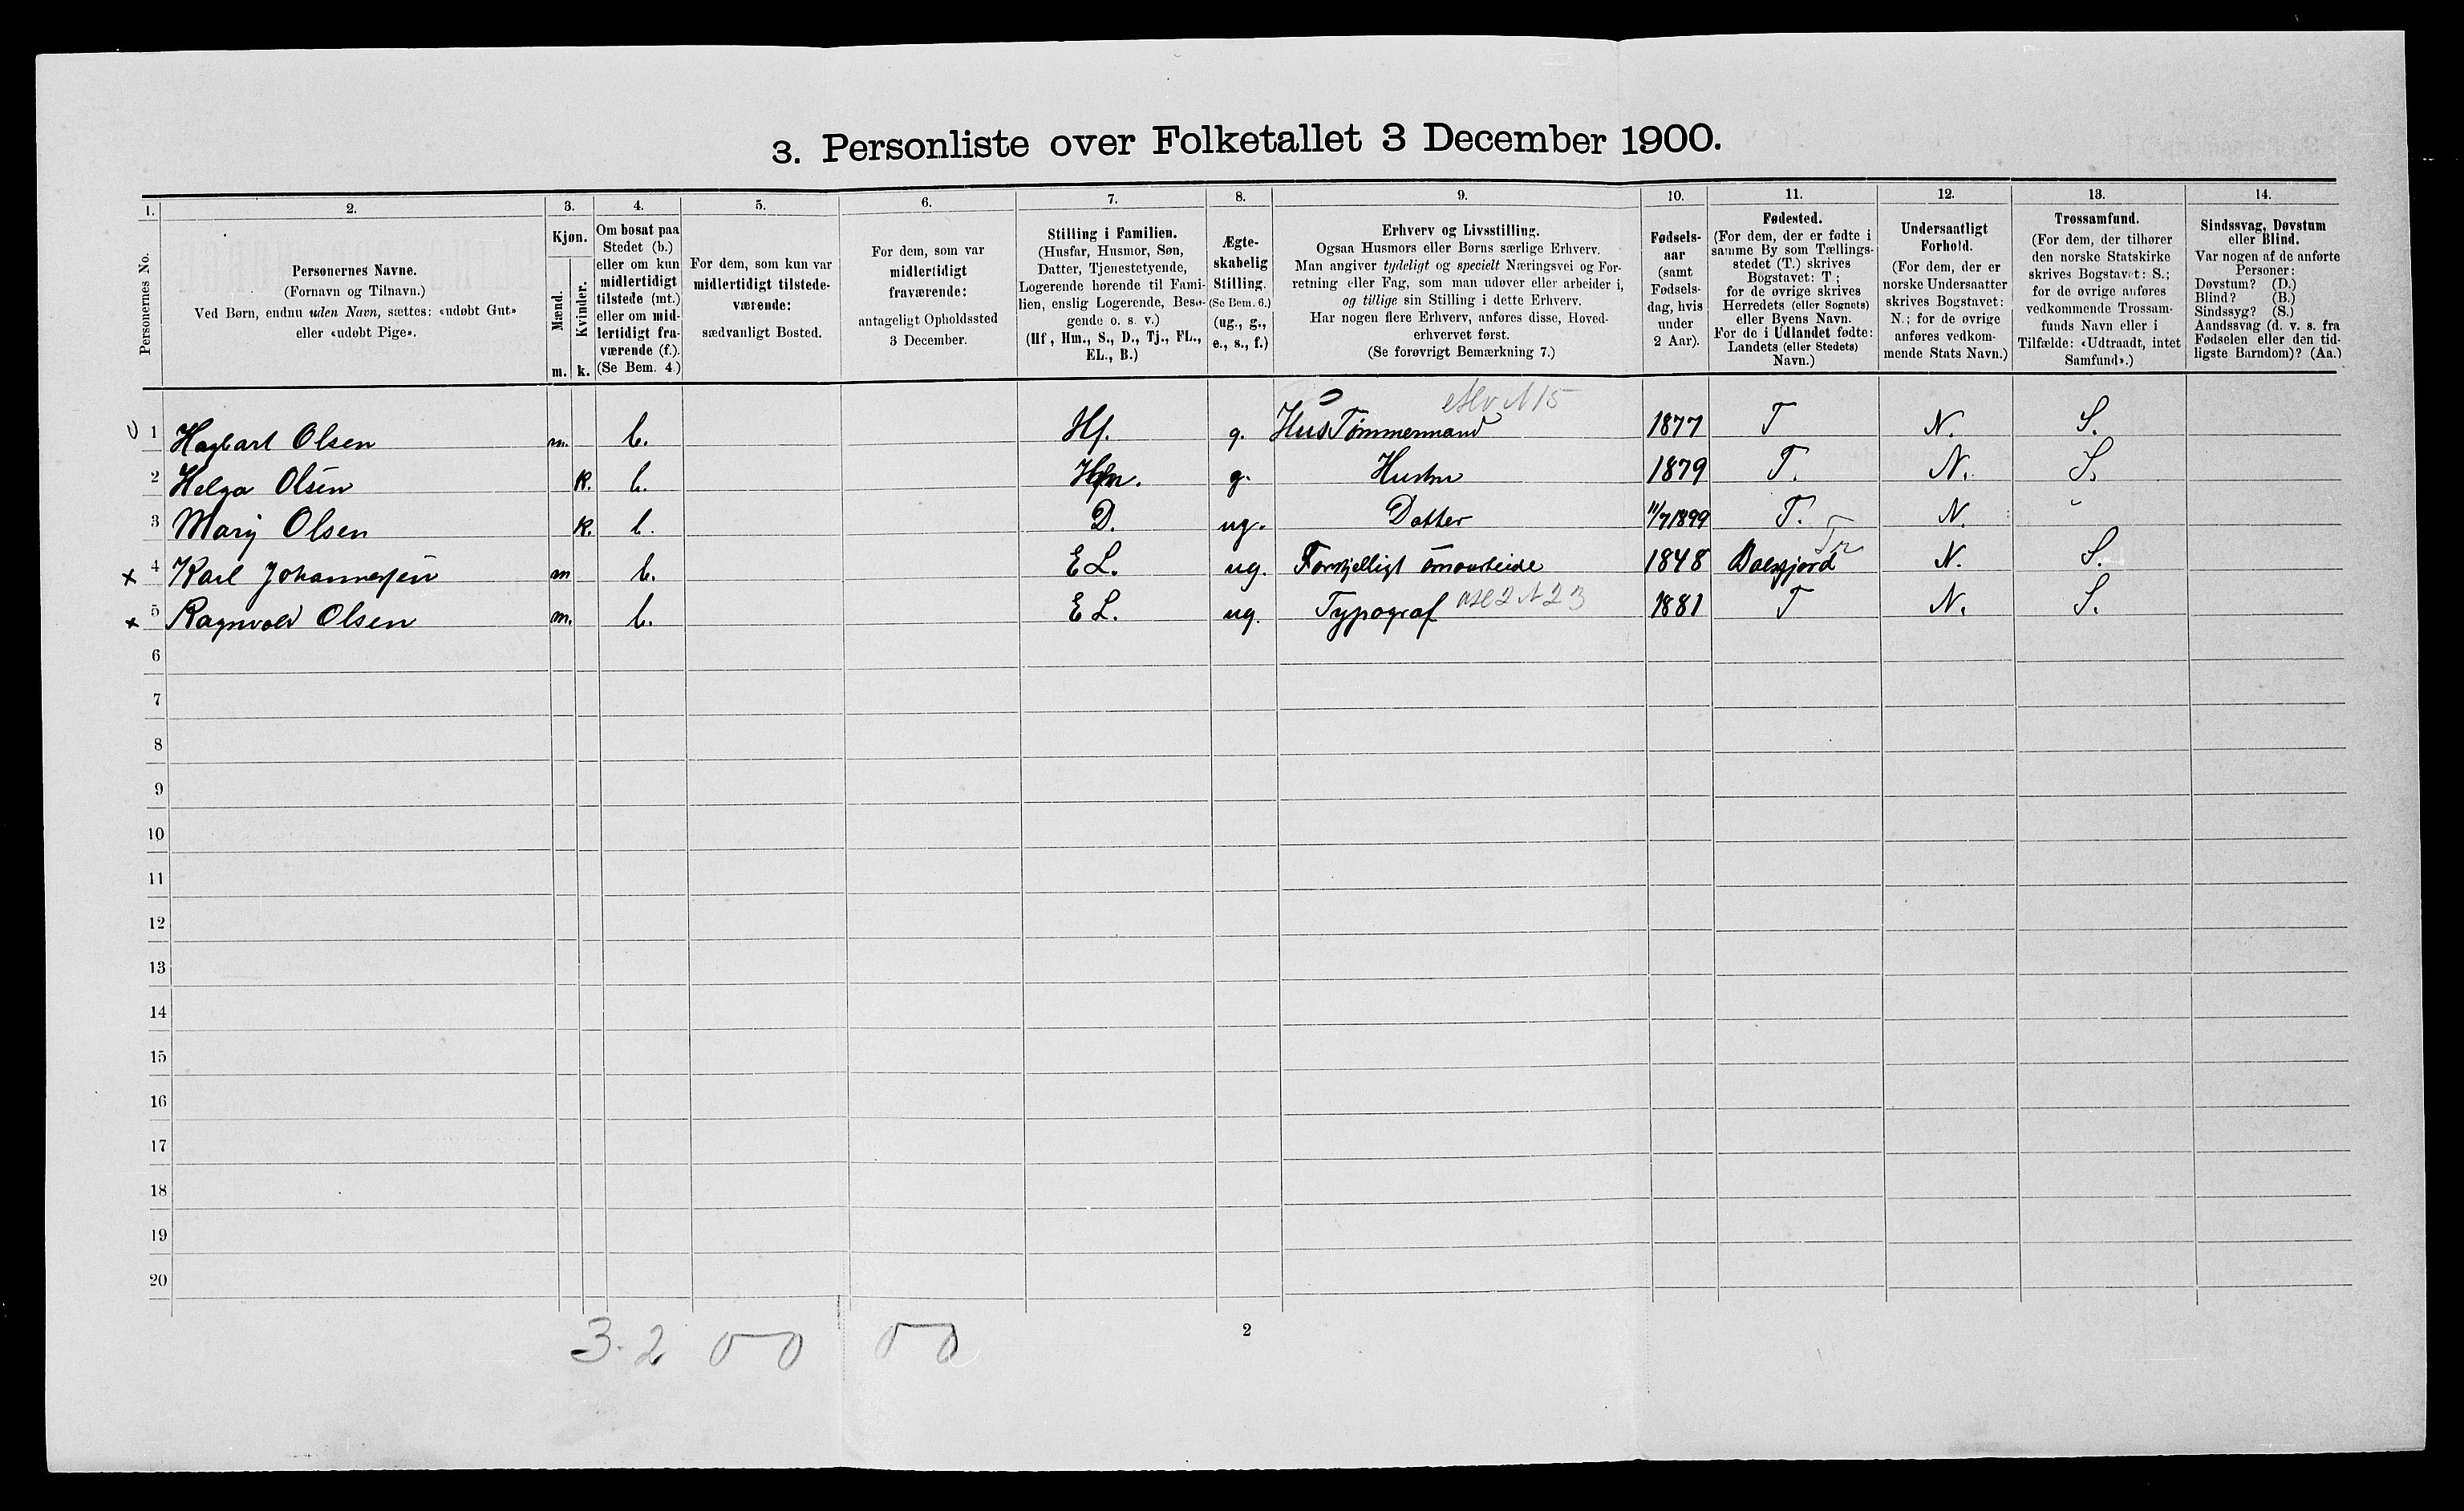 3. Personliste over Folketallet 3 December 1900.
1. 2. 3. 4. 5. 6. 7. 8. 9. 10. 11. 12. 13. 14.
Personernes No.
Personernes Navne.
(Fornavn og Tilnavn.)
Ved Børn, endnu uden Navn, sættes: «udøbt Gut»
eller «udøbt Pige».
Kjøn.
Mænd.
Kvinder.
m. k.
Om bosat paa
Stedet (b.)
eller om kun
midlertidigt
tilstede (mt.)
eller om mid-
lertidigt fra-
værende (f.).
(Se Bem. 4.)
For dem, som kun var
midlertidigt tilstede-
værende:
sædvanligt Bosted.
For dem, som var
midlertidigt
fraværende:
antageligt Opholdssted
3 December.
Stilling i Familien.
(Husfar, Husmor, Søn,
Datter, Tjenestetyende,
Logerende hørende til Fami-
lien, enslig Logerende, Besø-
gende o. s. v.)
(Hf., Hm., S., D., Tj., FL.,
EL., B.)
Ægte-
skabelig
Stilling.
(Se Bem. 6.)
(ug., g.,
e., s., f.)
Erhverv og Livsstilling.
Ogsaa Husmors eller Børns særlige Erhverv.
Man angiver tydeligt og specielt Næringsvei og For-
retning eller Fag, som man udøver eller arbeider i,
og tillige sin Stilling i dette Erhverv.
Har nogen flere Erhverv, anføres disse, Hoved-
erhvervet først.
(Se forøvrigt Bemærkning 7.)
Fødsels-
aar
(samt
Fødsels-
dag, hvis
under
2 Aar).
Fødested.
(For dem, der er fødte i
samme By som Tællings-
stedet (T.) skrives
Bogstavet: T;
for de øvrige skrives
Herredets (eller Sognets)
eller Byens Navn.
For de i Udlandet fødte:
Landets (eller Stedets)
Navn.)
Undersaatligt
Forhold.
(For dem, der er
norske Undersaatter
skrives Bogstavet:
N.; for de øvrige
anføres vedkom-
mende Stats Navn.)
Trossamfund.
(For dem, der tilhører
den norske Statskirke
skrives Bogstavet: S.;
for de øvrige anføres
vedkommende Trossam-
funds Navn eller i
Tilfælde: «Udtraadt, intet
Samfund».)
Sindssvag, Døvstum
eller Blind.
Var nogen af de anførte
Personer:
Døvstum? (D.)
Blind? (B.)
Sindssyg? (S.)
Aandssvag (d. v. s. fra
Fødselen eller den tid-
ligste Barndom)? (Aa.)
1 Hagbart Olsen m. b. Hf. g. Hus Tømmermand 1877 T N. S.
2 Helga Olsen k. b. Hm. g. Hustru 1879 T. N. S.
3 Mary Olsen k. b. D. ug. Datter 11/7 1899 T. N. "
x 4 Karl Johannesen m b. E L. ug. Forskjelligt 1848 Balsfjord Tr N. S.
x 5 Ragnvald Olsen m. b. E L. ug. Typograf 1881 T N. S.
6
7
8
9
10
11
12
13
14
15
16
17
18
19
20
3. 2 0 0 0 0
2